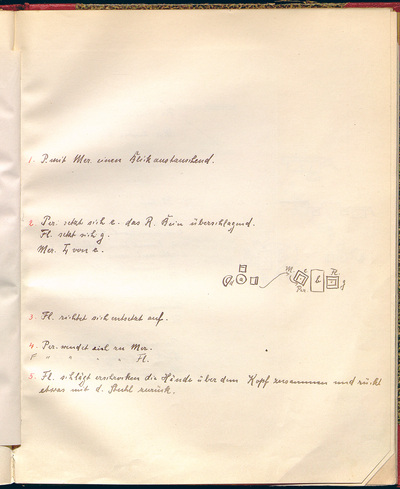 1. P. mit Mer. einen Blick austauschend.
2. Per. setzt sich e. das R. Bein überschlagend.
Fl. setzt sich g.
Mer. von e.
M Fl.
Per b g
3. Fl. richtet sich entsetzt auf.
4. Per. wendet sich zu Mer.
F " " " " Fl.
5. Fl. schlägt erschrocken die Hände über dem Kopf zusammen und rückt
etwas mit d. Stuhl zurück.